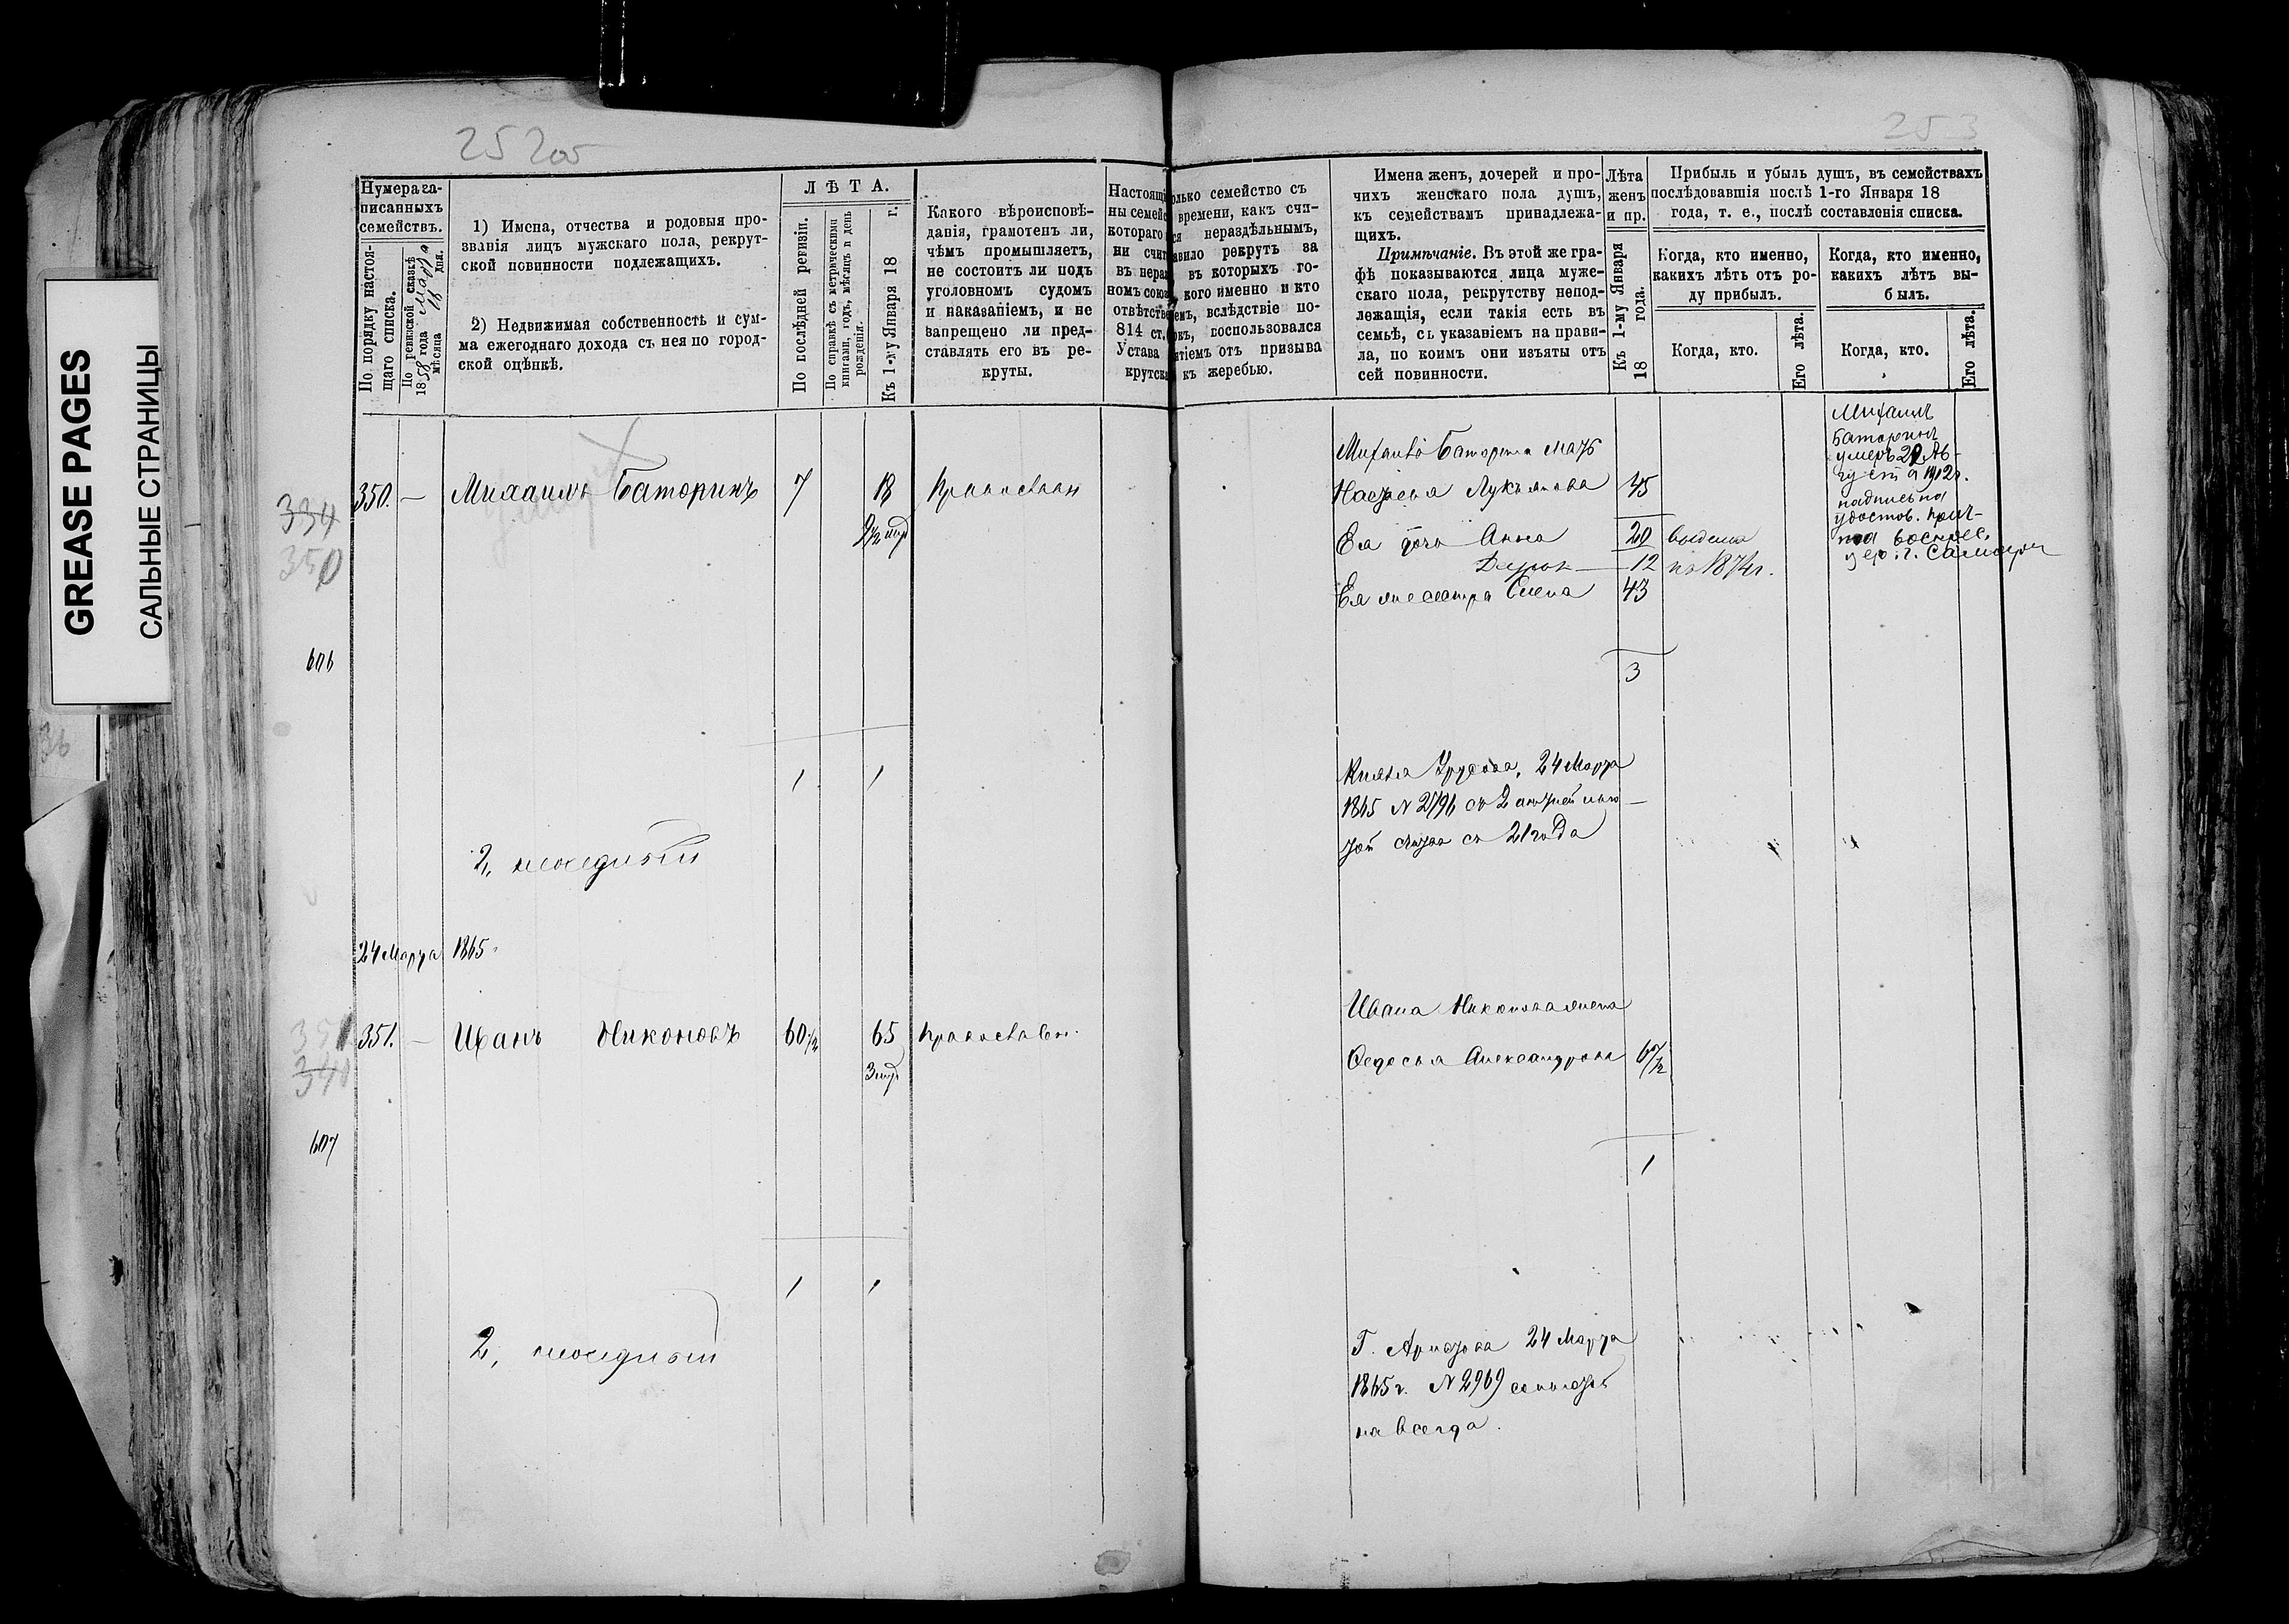 GREASE PAGES
САЛЬНЫЕ СТРАНИЦЫ
252об
253
Нумера за-
писанныхъ
семействъ.
По порядку настоя-
щаго списка.
По ревизской сказкѣ
1858 года
мѣсяца дня.
1) Имена, отчества и родовыя про-
званія лицъ мужскаго пола, рекрут-
ской повинности подлежащихъ.
2) Недвижимая собственность и сум-
ма ежегоднаго дохода съ нея по город-
ской оцѣнкѣ.
ЛѢТА.
По послѣдней ревизіи.
По справкѣ съ метрическими
книгами, годъ, мѣсяцъ и день
рожденія.
Къ 1-му Января 18 г.
Какого вѣроисповѣ-
данія, грамотенъ ли,
чѣмъ промышляетъ,
не состоитъ ли подъ
уголовномъ судомъ
и наказаніемъ, и не
запрещено ли пред-
ставлять его въ ре-
круты.
Настоящі
ны семейс
котораго
ни счит
въ нераз
номъ союз
отвѣтстве
814 ст.
Устава
крутска
олько семейство съ
времени, какъ счи-
ся нераздѣльнымъ,
авило рекрутъ за
въ которыхъ го-
кого именно и кто
емъ, вслѣдствіе по-
окъ, воспользовался
ятіемъ отъ призыва
къ жеребью.
Имена женъ, дочерей и про-
чихъ женскаго пола душъ,
къ семействамъ принадлежа-
щихъ.
Примѣчаніе. Въ этой же гра-
фѣ показываются лица муже-
скаго пола, рекрутству непод-
лежащія, если такія есть въ
семьѣ, съ указаніемъ на прави-
ла, по коимъ они изъяты отъ
сей повинности.
Лѣта
женъ
и пр.
Къ 1-му Января
18 года.
Прибыль и убыль душъ, въ семействахъ
послѣдовавшія послѣ 1-го Января 18
года, т. е., послѣ составленія списка.
Когда, кто именно,
какихъ лѣтъ отъ ро-
ду прибылъ.
Когда, кто именно,
какихъ лѣтъ вы-
былъ.
Когда, кто.
Его лѣта.
Когда, кто.
Его лѣта.
334
350
350. — Михаилъ Баторинъ 7 18
606
Баторина мать
Настасья Лукьянова 45
Ея дочь Анна 20
12 1874г.
Ея же сестра Елена 43
3
Михаилъ
Баторинъ
умеръ 29 Ав-
густа 1912г.
надпись на
удостов. прич-
та воскрес.
цер. г. Самары
1 1
Князя Урусова, 24 Марта
1865 N 2796
съ 21 года
2,
24 Марта 1865
351
340
351. — Иванъ Никоновъ 60 1/2 65 Православн.
607
Ивана Никонова жена
Федосья Александрова
1
1 1
2,
24 Марта
1865 г. N 2969
на всегда.